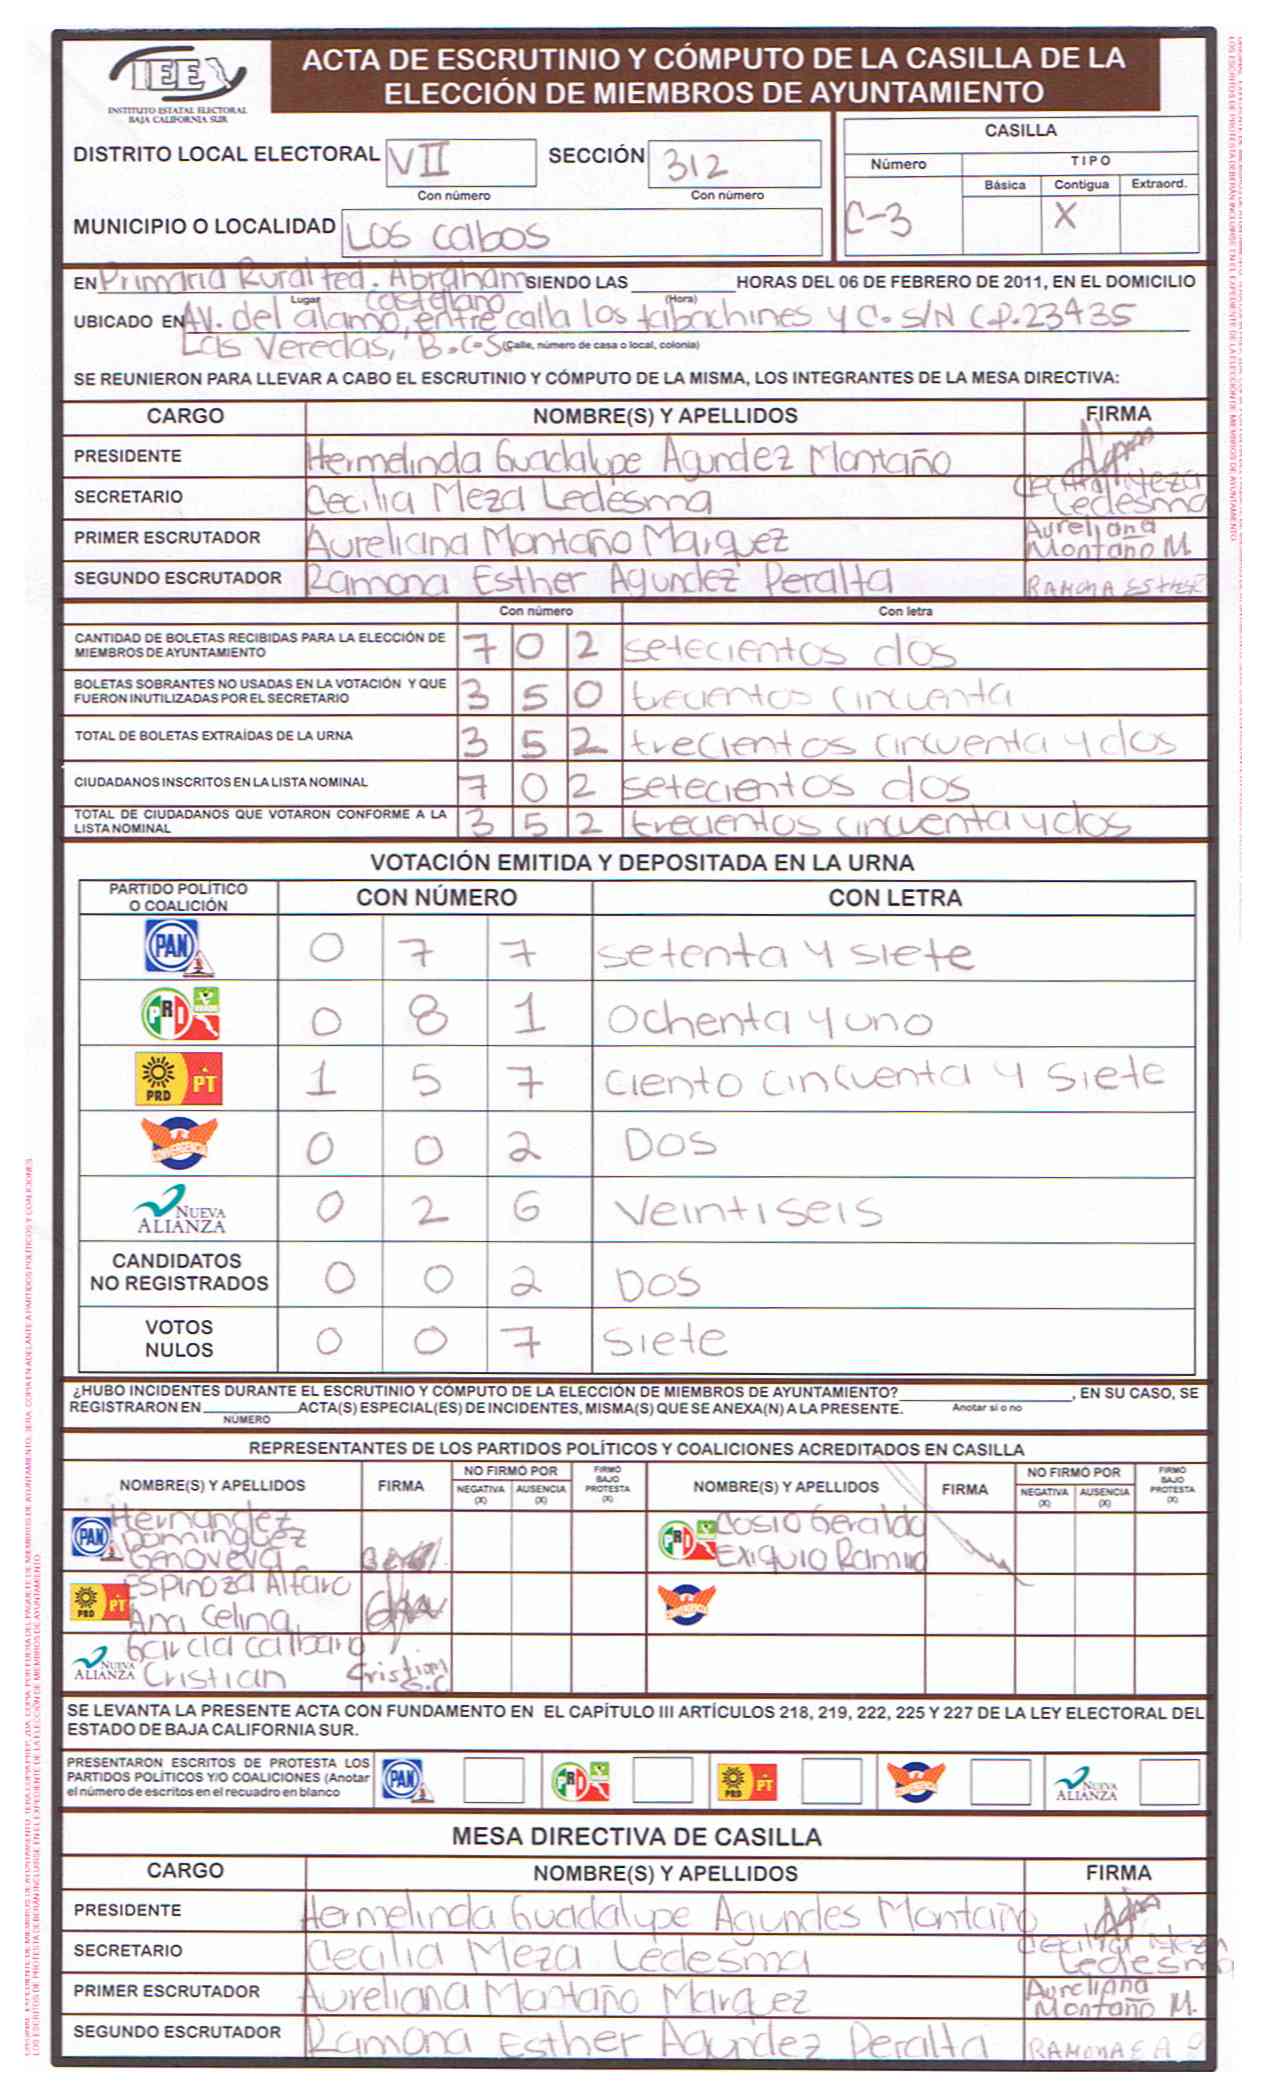 IEE
INSTITUTO ESTATAL ELECTORAL
BAJA CALIFORNIA SUR
ACTA DE ESCRUTINIO Y CÓMPUTO DE LA CASILLA DE LA
ELECCIÓN DE MIEMBROS DE AYUNTAMIENTO
DISTRITO LOCAL ELECTORAL VII SECCIÓN 312
Con número Con número
MUNICIPIO O LOCALIDAD Los cabos
CASILLA
Número TIPO
Básica Contigua Extraord.
C-3 X
EN Primaria Rural fed. Abraham SIENDO LAS HORAS DEL 06 DE FEBRERO DE 2011, EN EL DOMICILIO
Lugar castellano (Hora)
UBICADO EN AV. del alamo, entre calla los tabachines y C. S/N C.P. 23435
Las Veredas, B.C.S. (Calle, número de casa o local, colonia)
SE REUNIERON PARA LLEVAR A CABO EL ESCRUTINIO Y CÓMPUTO DE LA MISMA, LOS INTEGRANTES DE LA MESA DIRECTIVA:
CARGO NOMBRE(S) Y APELLIDOS FIRMA
PRESIDENTE Hermelinda Guadalupe Agundez Montaño
SECRETARIO Cecilia Meza Ledesma Cecilia Meza Ledesma
PRIMER ESCRUTADOR Aureliana Montaño Marquez Aureliana Montaño M.
SEGUNDO ESCRUTADOR Ramona Esther Agundez Peralta RAMONA ESTHER
Con número Con letra
CANTIDAD DE BOLETAS RECIBIDAS PARA LA ELECCIÓN DE
MIEMBROS DE AYUNTAMIENTO 7 0 2 setecientos dos
BOLETAS SOBRANTES NO USADAS EN LA VOTACIÓN Y QUE
FUERON INUTILIZADAS POR EL SECRETARIO 3 5 0 trecientos cincuenta
TOTAL DE BOLETAS EXTRAÍDAS DE LA URNA 3 5 2 trecientos cincuenta y dos
CIUDADANOS INSCRITOS EN LA LISTA NOMINAL 7 0 2 setecientos dos
TOTAL DE CIUDADANOS QUE VOTARON CONFORME A LA
LISTA NOMINAL 3 5 2 trecientos cincuenta y dos
VOTACIÓN EMITIDA Y DEPOSITADA EN LA URNA
PARTIDO POLÍTICO
O COALICIÓN CON NÚMERO CON LETRA
PAN 0 7 7 setenta y siete
PRI VERDE 0 8 1 ochenta y uno
PRD PT 1 5 7 ciento cincuenta y siete
CONVERGENCIA 0 0 2 DOS
NUEVA ALIANZA 0 2 6 veintiseis
CANDIDATOS
NO REGISTRADOS 0 0 2 DOS
VOTOS
NULOS 0 0 7 siete
¿HUBO INCIDENTES DURANTE EL ESCRUTINIO Y CÓMPUTO DE LA ELECCIÓN DE MIEMBROS DE AYUNTAMIENTO? , EN SU CASO, SE
REGISTRARON EN ACTA(S) ESPECIAL(ES) DE INCIDENTES, MISMA(S) QUE SE ANEXA(N) A LA PRESENTE. Anotar si o no
NÚMERO
REPRESENTANTES DE LOS PARTIDOS POLÍTICOS Y COALICIONES ACREDITADOS EN CASILLA
NOMBRE(S) Y APELLIDOS FIRMA NO FIRMÓ POR NEGATIVA (X) AUSENCIA (X) FIRMÓ BAJO PROTESTA (X) NOMBRE(S) Y APELLIDOS FIRMA NO FIRMÓ POR NEGATIVA (X) AUSENCIA (X) FIRMÓ BAJO PROTESTA (X)
PAN Hernandez Dominguez Genoveva PRI Cosio Geraldo Exiquio Ramiro
PRD PT Espinoza Alfaro Ana Celina CONVERGENCIA
NUEVA ALIANZA Garcia Cristian Cristian G.C
SE LEVANTA LA PRESENTE ACTA CON FUNDAMENTO EN EL CAPÍTULO III ARTÍCULOS 218, 219, 222, 225 Y 227 DE LA LEY ELECTORAL DEL
ESTADO DE BAJA CALIFORNIA SUR.
PRESENTARON ESCRITOS DE PROTESTA LOS
PARTIDOS POLÍTICOS Y/O COALICIONES (Anotar
el número de escritos en el recuadro en blanco
PAN PRI PRD PT CONVERGENCIA NUEVA ALIANZA
MESA DIRECTIVA DE CASILLA
CARGO NOMBRE(S) Y APELLIDOS FIRMA
PRESIDENTE Hermelinda Guadalupe Agundes Montaño
SECRETARIO Cecilia Meza Ledesma Cecilia Meza Ledesma
PRIMER ESCRUTADOR Aureliana Montaño Marquez Aureliana Montaño M.
SEGUNDO ESCRUTADOR Ramona Esther Agundez Peralta RAMONA E A P